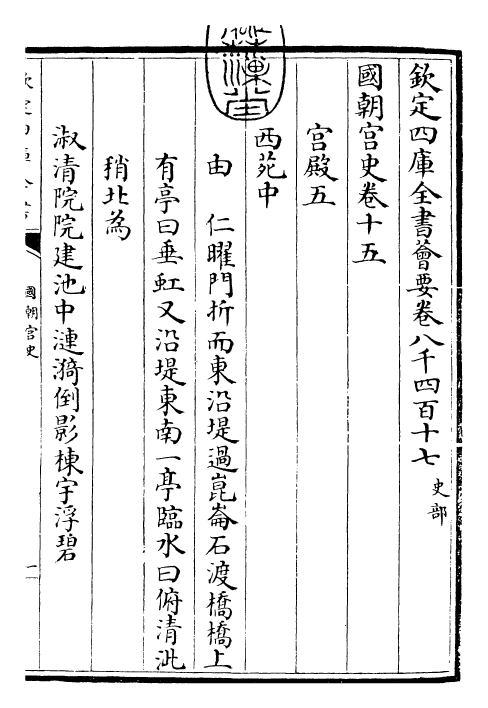 欽定四庫全書薈要卷八千四百十七 史部
國朝宮史卷十五
宮殿五
西苑中
由 仁曜門折而東沿堤過崑崙石渡橋橋上
有亭曰垂虹又沿堤東南一亭臨水曰俯清泚
稍北為
淑清院院建池中漣漪倒影棟宇浮碧
國朝宮史
一